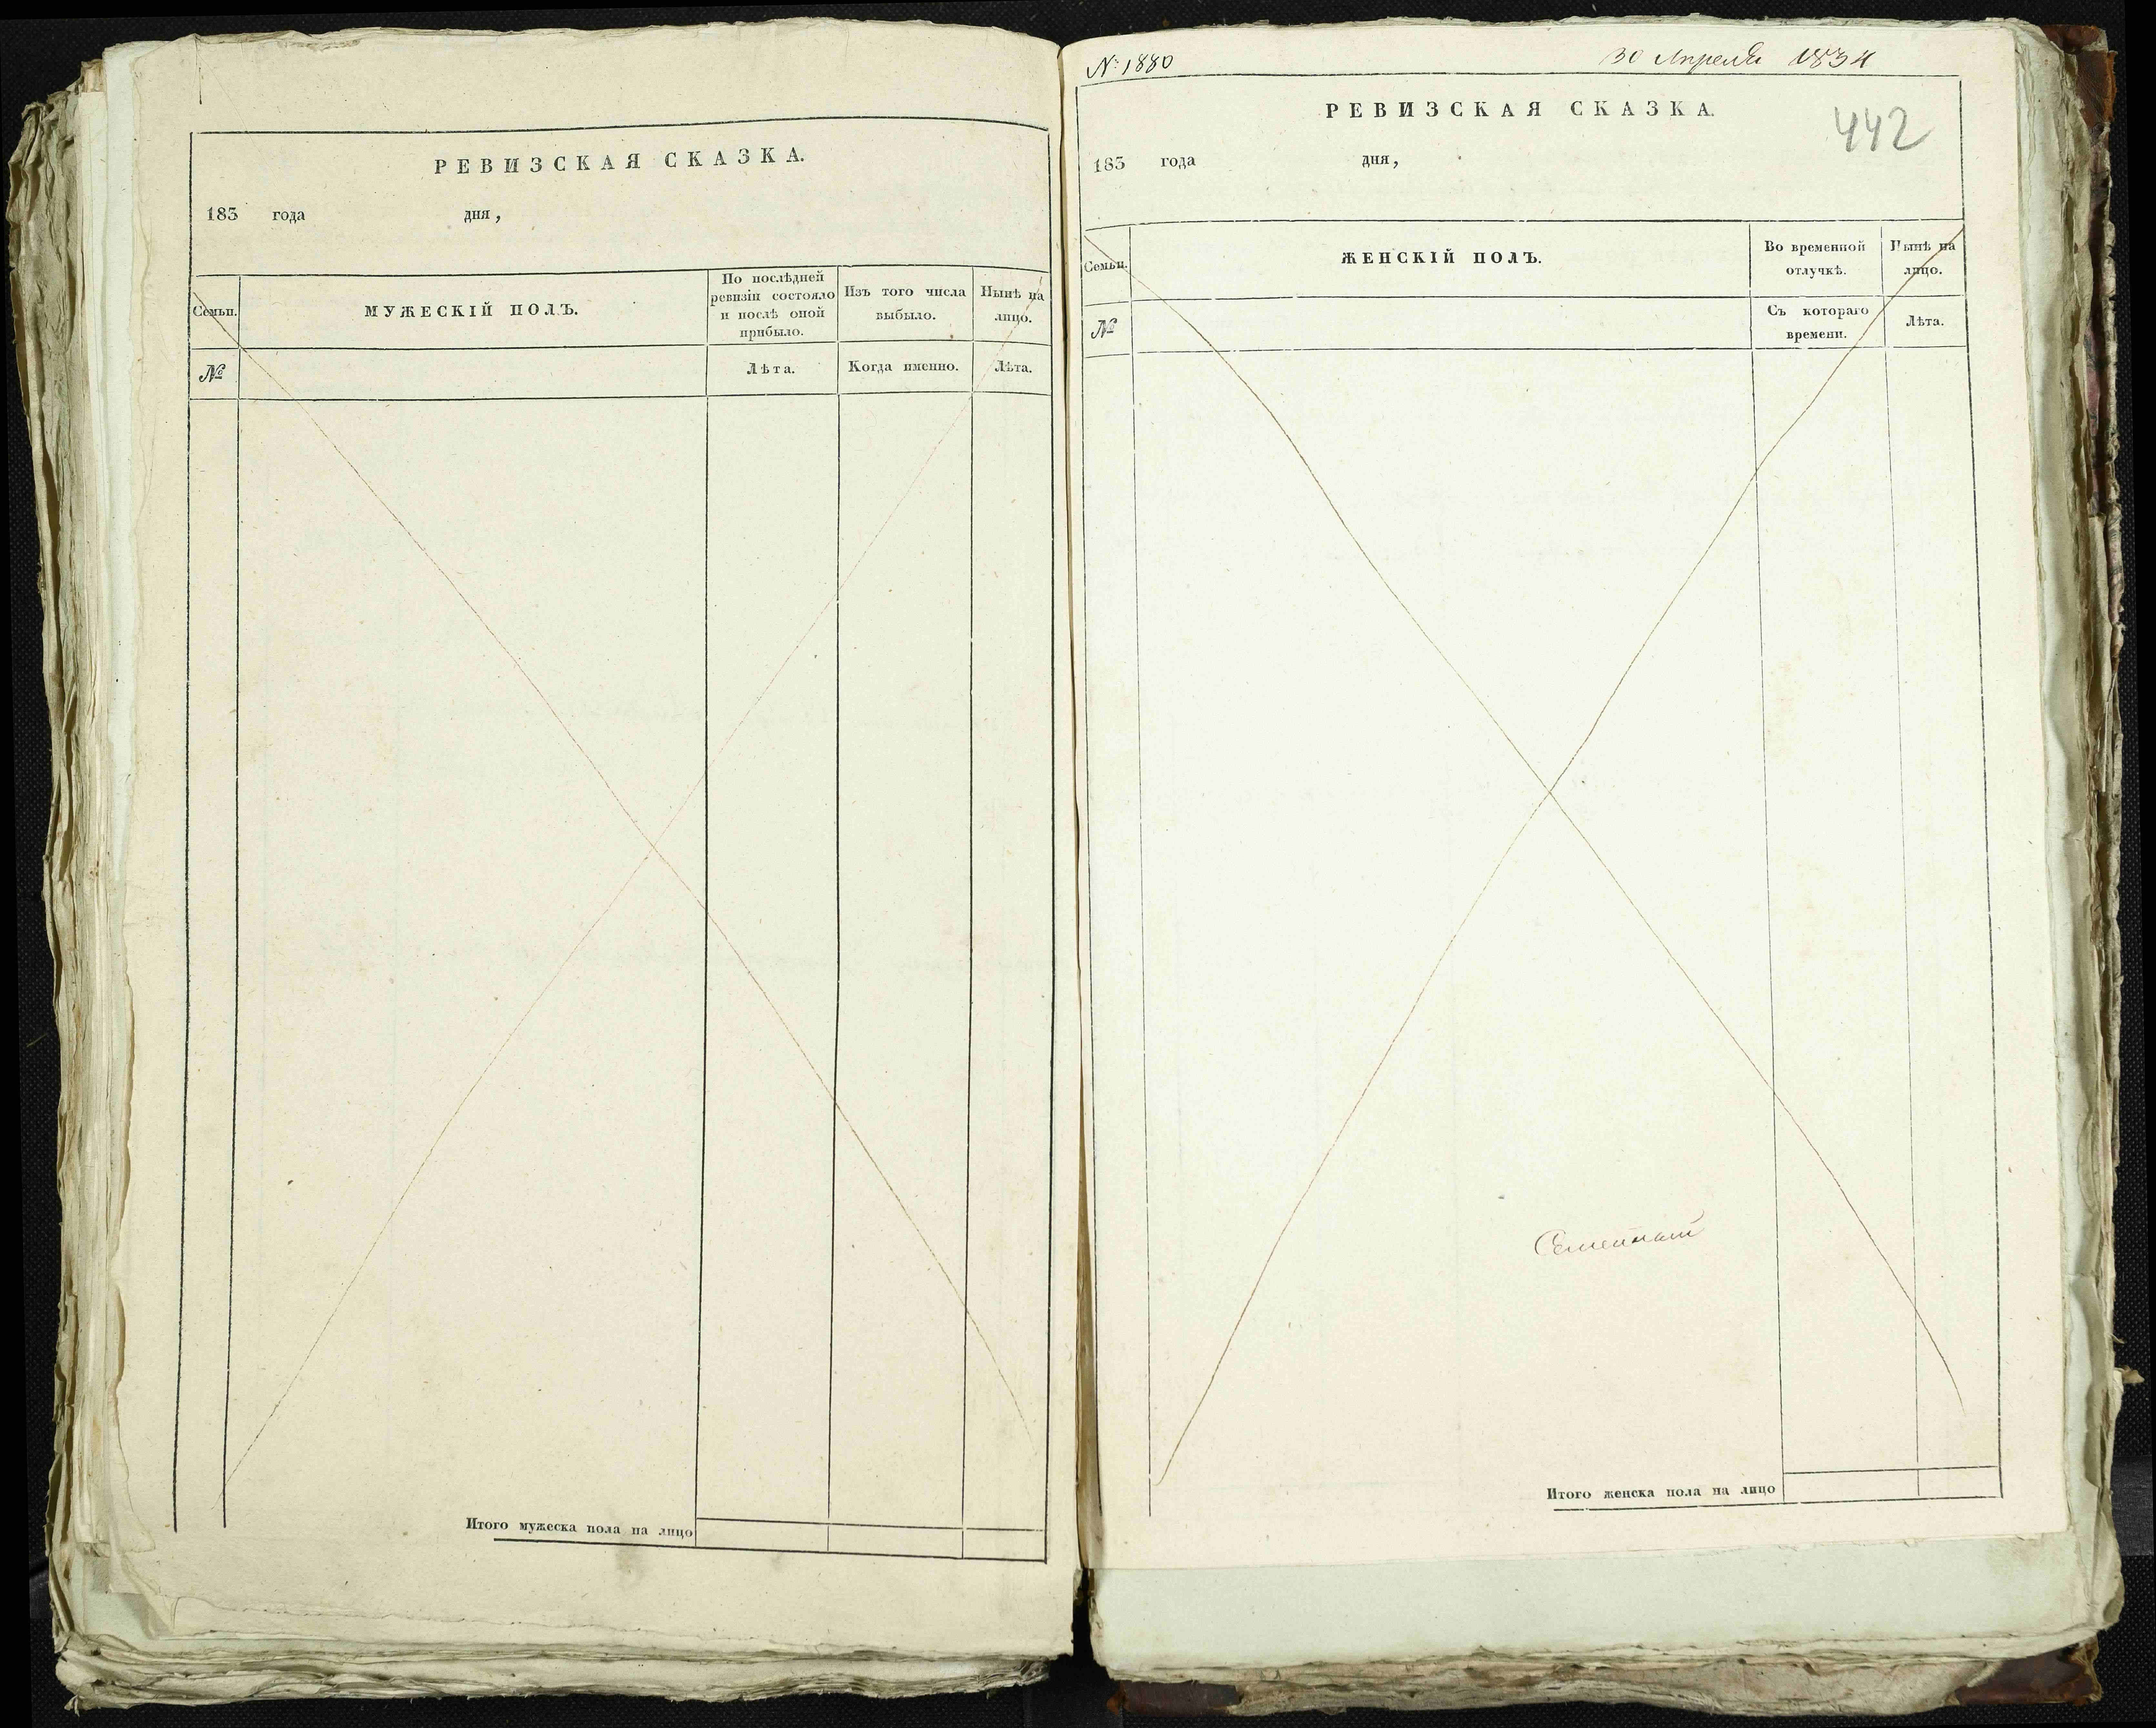 РЕВИЗСКАЯ СКАЗКА.
183 года дня,
Семьи.
МУЖЕСКІЙ ПОЛЪ.
По послѣдней ревизіи состояло и послѣ оной прибыло.
Изъ того числа выбыло.
Нынѣ на лицо.
№
Лѣта.
Когда именно.
Лѣта.
Итого мужеска пола на лицо
№ 1880
30 Апреля 1834
РЕВИЗСКАЯ СКАЗКА.
442
183 года дня,
Семьи.
ЖЕНСКІЙ ПОЛЪ.
Во временной отлучкѣ.
Нынѣ на лицо.
№
Съ котораго времени.
Лѣта.
Итого женска пола на лицо